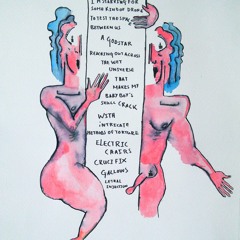 I'M STARVING FOR
SOME KIND OF DRUGS
TO TEST THE SPACE
BETWEEN US
A GODSTAR
REACHING OUT ACROSS
THE WET
UNIVERSE
THAT
MAKES MY
BABY BOY'S
SKULL CRACK
WITH
INTRICATE
METHODS OF TORTURE
ELECTRIC
CHAIRS
CRUCIFIX
GALLOWS
LETHAL
INJECTION